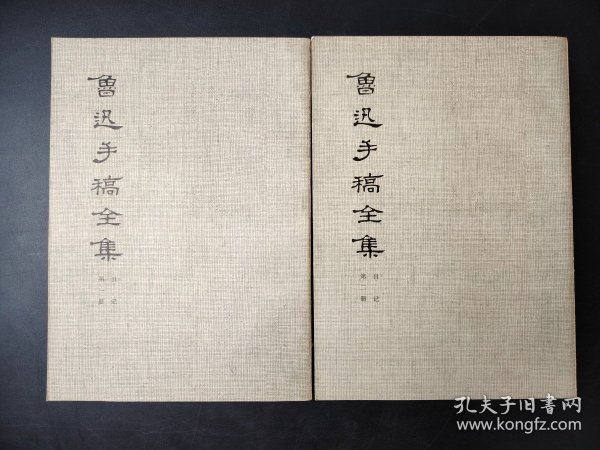 魯迅手稿全集
日记
第一册
魯迅手稿全集
日记
第一册
孔夫子旧書网
www.kongfz.com